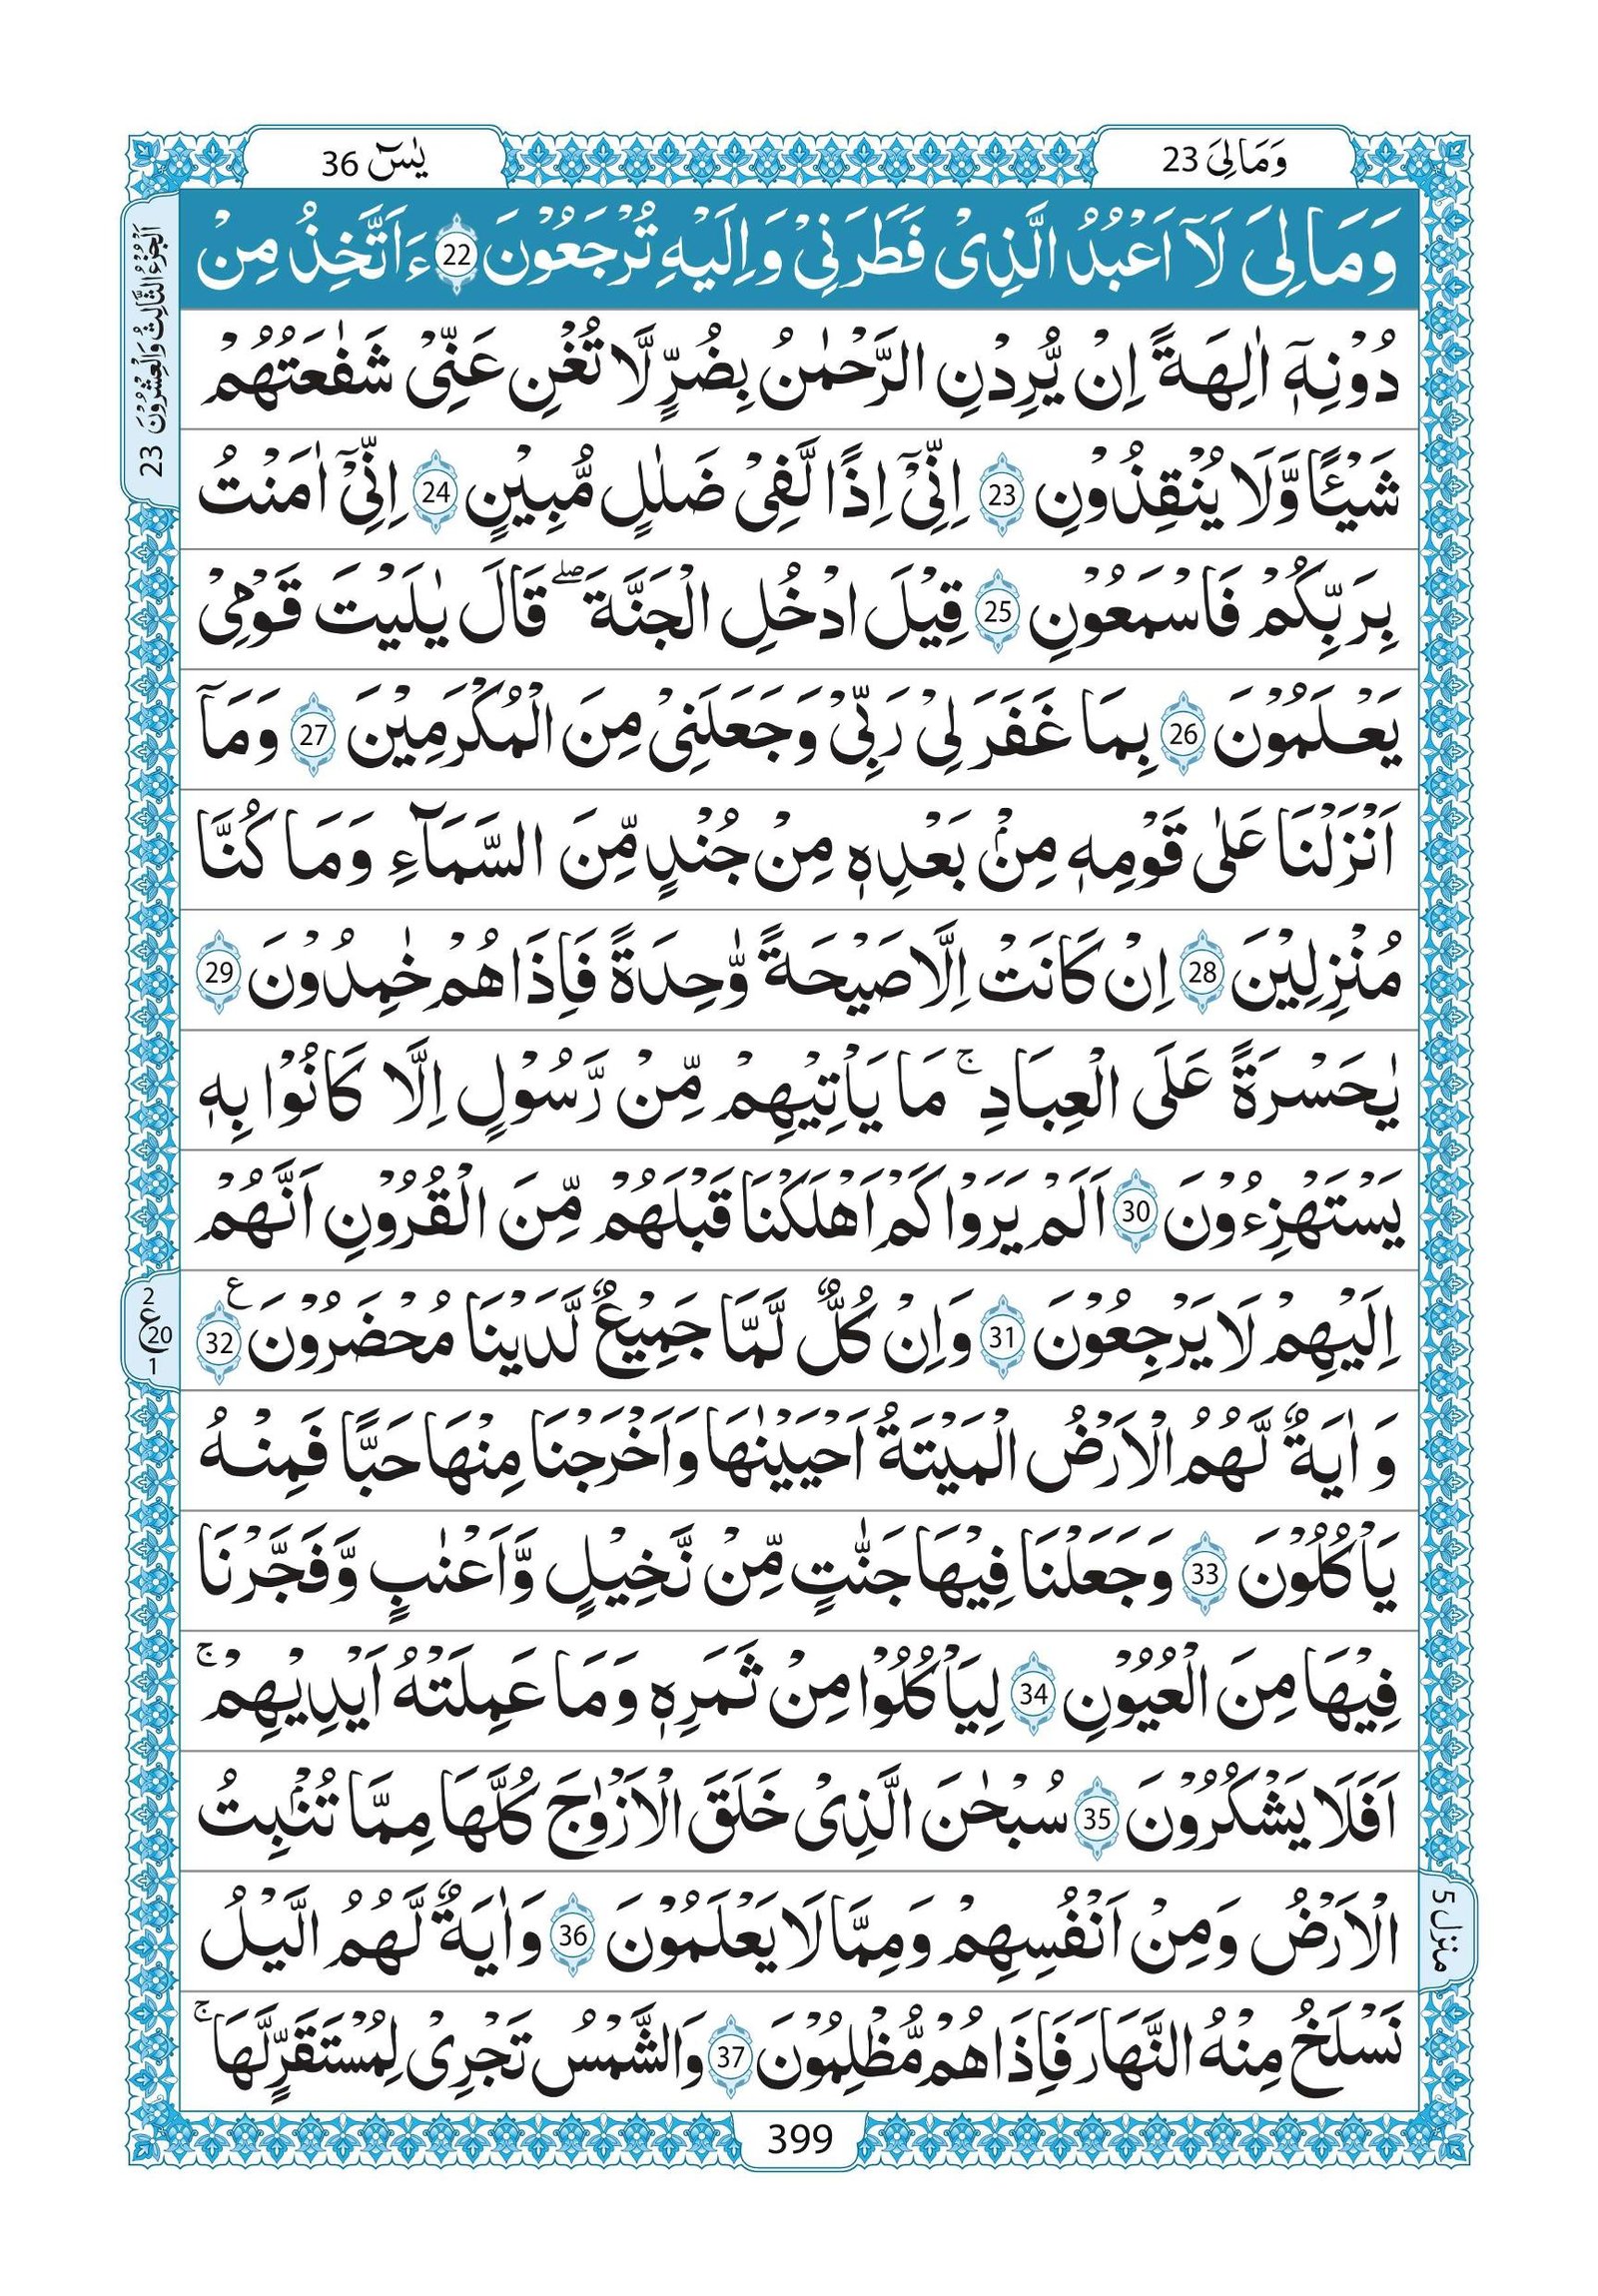 وَمَالِىَ 23
يٰسٓ 36
اَلْجُزْءُ الثَّالِثُ وَالْعِشْرُوْنَ 23
وَمَا لِىَ لَاۤ اَعْبُدُ الَّذِىْ فَطَرَنِىْ وَاِلَيْهِ تُرْجَعُوْنَ 22 ءَاَتَّخِذُ مِنْ
دُوْنِهٖۤ اٰلِهَةً اِنْ يُّرِدْنِ الرَّحْمٰنُ بِضُرٍّ لَّا تُغْنِ عَنِّىْ شَفٰعَتُهُمْ
شَيْـًٔا وَّلَا يُنْقِذُوْنِ 23 اِنِّىْۤ اِذًا لَّفِىْ ضَلٰلٍ مُّبِيْنٍ 24 اِنِّىْۤ اٰمَنْتُ
بِرَبِّكُمْ فَاسْمَعُوْنِ 25 قِيْلَ ادْخُلِ الْجَنَّةَ ۖ قَالَ يٰلَيْتَ قَوْمِىْ
يَعْلَمُوْنَ 26 بِمَا غَفَرَ لِىْ رَبِّىْ وَجَعَلَنِىْ مِنَ الْمُكْرَمِيْنَ 27 وَمَاۤ
اَنْزَلْنَا عَلٰى قَوْمِهٖ مِنْۢ بَعْدِهٖ مِنْ جُنْدٍ مِّنَ السَّمَآءِ وَمَا كُنَّا
مُنْزِلِيْنَ 28 اِنْ كَانَتْ اِلَّا صَيْحَةً وّٰحِدَةً فَاِذَا هُمْ خٰمِدُوْنَ 29
يٰحَسْرَةً عَلَى الْعِبَادِ ۚ مَا يَاْتِيْهِمْ مِّنْ رَّسُوْلٍ اِلَّا كَانُوْا بِهٖ
يَسْتَهْزِءُوْنَ 30 اَلَمْ يَرَوْا كَمْ اَهْلَكْنَا قَبْلَهُمْ مِّنَ الْقُرُوْنِ اَنَّهُمْ
اِلَيْهِمْ لَا يَرْجِعُوْنَ 31 وَاِنْ كُلٌّ لَّمَّا جَمِيْعٌ لَّدَيْنَا مُحْضَرُوْنَ ع 32
2 ع 20 1
وَاٰيَةٌ لَّهُمُ الْاَرْضُ الْمَيْتَةُ اَحْيَيْنٰهَا وَاَخْرَجْنَا مِنْهَا حَبًّا فَمِنْهُ
يَاْكُلُوْنَ 33 وَجَعَلْنَا فِيْهَا جَنّٰتٍ مِّنْ نَّخِيْلٍ وَّاَعْنٰبٍ وَّفَجَّرْنَا
فِيْهَا مِنَ الْعُيُوْنِ 34 لِيَاْكُلُوْا مِنْ ثَمَرِهٖ وَمَا عَمِلَتْهُ اَيْدِيْهِمْ ۚ
اَفَلَا يَشْكُرُوْنَ 35 سُبْحٰنَ الَّذِىْ خَلَقَ الْاَزْوٰجَ كُلَّهَا مِمَّا تُنْۢبِتُ
الْاَرْضُ وَمِنْ اَنْفُسِهِمْ وَمِمَّا لَا يَعْلَمُوْنَ 36 وَاٰيَةٌ لَّهُمُ الَّيْلُ
منزل 5
نَسْلَخُ مِنْهُ النَّهَارَ فَاِذَا هُمْ مُّظْلِمُوْنَ 37 وَالشَّمْسُ تَجْرِىْ لِمُسْتَقَرٍّ لَّهَا ۚ
399